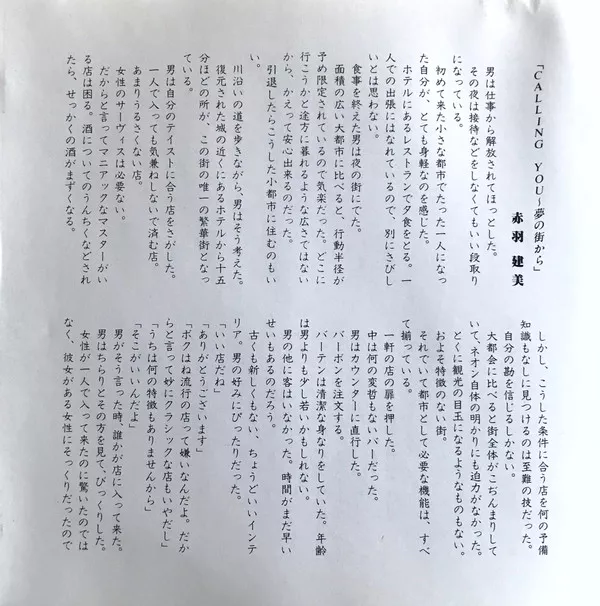 「CALLING YOU～夢の街から」
赤羽 建美
男は仕事から解放されてほっとした。
その夜は接待などをしなくてもいい段取り
になっている。
初めて来た小さな都市でたった一人になっ
た自分が、とても身軽なのを感じた。
ホテルにあるレストランで夕食をとる。一
人での出張にはなれているので、別にさびし
いとは思わない。
食事を終えた男は夜の街にでた。
面積の広い大都市に比べると、行動半径が
予め限定されているので気楽だった。どこに
行こうかと途方に暮れるような広さではない
から、かえって安心出来るのだった。
引退したらこうした小都市に住むのもい
い。
川沿いの道を歩きながら、男はそう考えた。
復元された城の近くにあるホテルから十五
分ほどの所が、この街の唯一の繁華街となっ
ている。
男は自分のテイストに合う店をさがした。
一人で入っても気兼ねしないで済む店。
あまりうるさくない店。
女性のサーヴィスは必要ない。
だからと言ってマニアックなマスターがい
る店は困る。酒についてのうんちくなどされ
たら、せっかくの酒がまずくなる。
しかし、こうした条件に合う店を何の予備
知識もなしに見つけるのは至難の技だった。
自分の勘を信じるしかない。
大都会に比べると街全体がこぢんまりして
いて、ネオン自体の明かりにも迫力がなかった。
とくに観光の目玉になるようなものもない。
およそ特徴のない街。
それでいて都市として必要な機能は、すべ
て揃っている。
一軒の店の扉を押した。
中は何の変哲もないバーだった。
男はカウンターに直行した。
バーボンを注文する。
バーテンは清潔な身なりをしていた。年齢
は男よりも少し若いかもしれない。
男の他に客はいなかった。時間がまだ早い
せいもあるのだろう。
古くも新しくもない、ちょうどいいインテ
リア。男の好みにぴったりだった。
「いい店だね」
「ありがとうございます」
「ボクはね流行の店って嫌いなんだよ。だか
らと言って妙にクラシックな店もいやだし」
「うちは何の特徴もありませんから」
「そこがいいんだよ」
男がそう言った時、誰かが店に入って来た。
男はちらりとその方を見て、びっくりした。
女性が一人で入って来たのに驚いたのでは
なく、彼女がある女性にそっくりだったので